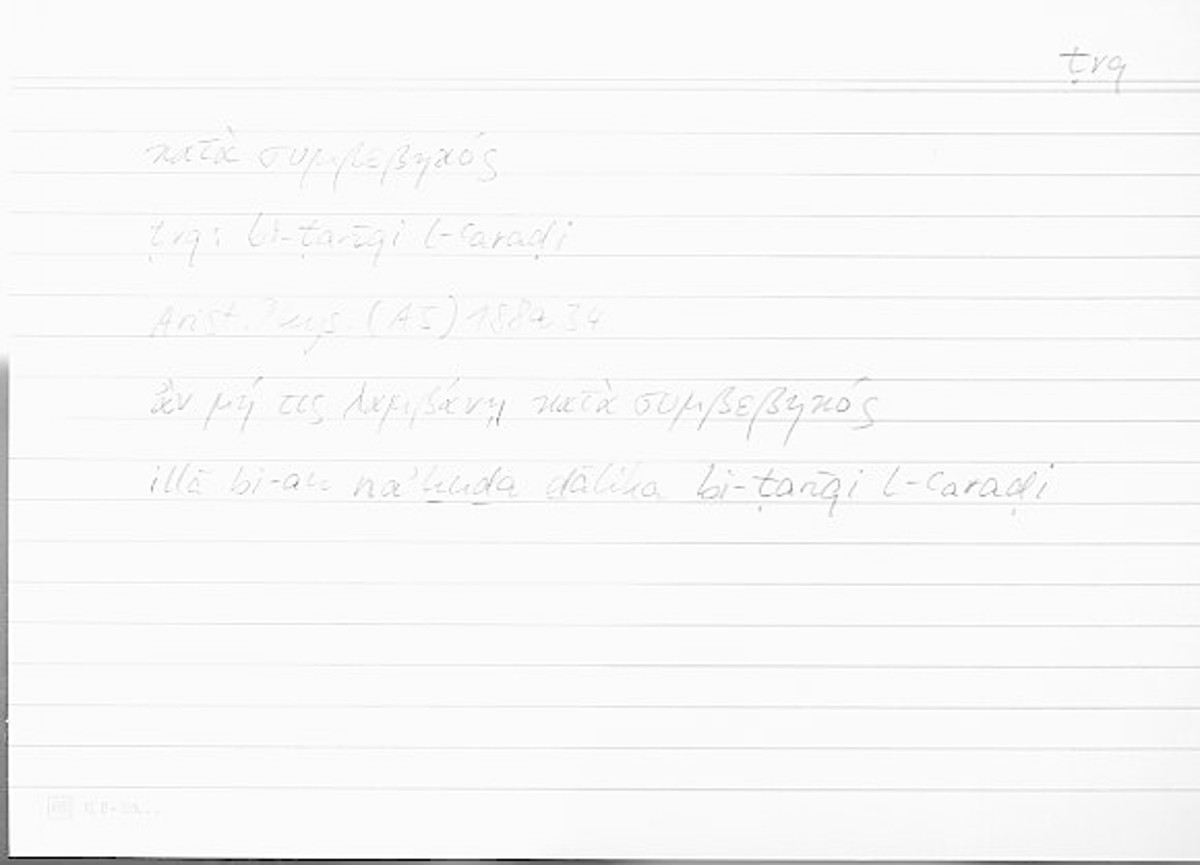 ṭrq
κατὰ συμβεβηκός
ṭrq: bi-ṭarīqi l-ʿaraḍi
Arist. Phys. (AI) 188a 34
ἂν μή τις λαμβάνῃ κατὰ συμβεβηκός
illā bi-an naʾḫuḏa ḏālika bi-ṭarīqi l-ʿaraḍi